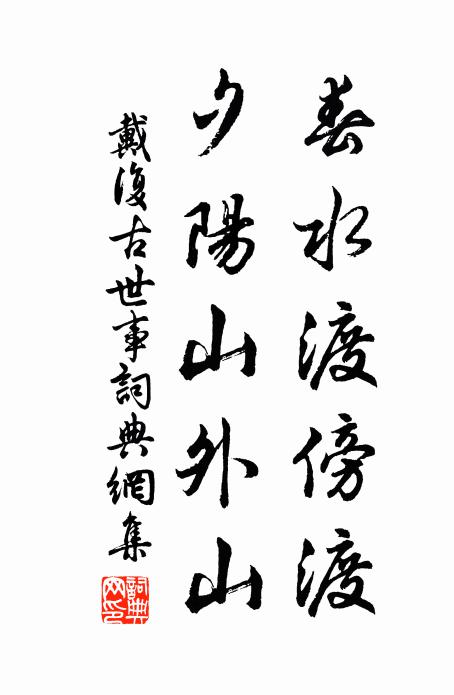 春水渡傍渡
夕陽山外山
戴復古世事詞典網集
詞典
网印